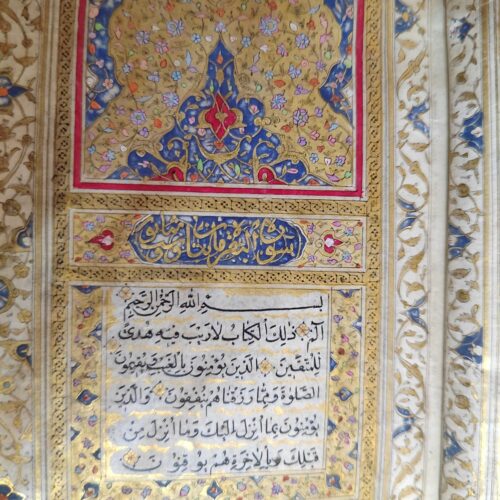 سورة البقرة مائتان
بسم الله الرحمن الرحيم
الم ذلك الكتاب لا ريب فيه هدى
للمتقين الذين يؤمنون بالغيب ويقيمون
الصلوة ومما رزقناهم ينفقون والذين
يؤمنون بما أنزل اليك وما أنزل من
قبلك وبالآخرة هم يوقنون